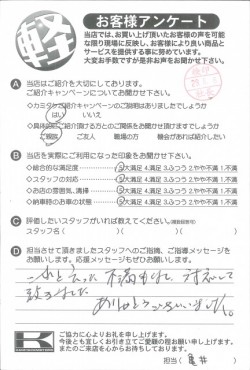 軽
お客様アンケート
当店では、お買い上げ頂いたお客様の声を可能
な限り現場に反映し、お客様により良い商品と
サービスを提供する事に努めています。
大変お手数ですが是非お声をお聞かせ下さい。
A 当店はご紹介を大切にしております。
ご紹介キャンペーンについてお聞かせ下さい
◇カミタケご紹介キャンペーンのご説明はありましたでしょうか
はい いいえ
ご親族 ご友人 職場の方 機会があれば紹介したい
B 当店を実際にご利用になった印象をお聞かせ下さい。
◇総合的な満足度 5大満足 4.満足 3.ふつう 2.やや不満 1.不満
◇スタッフの対応 5大満足 4.満足 3.ふつう 2.やや不満 1.不満
◇お店の雰囲気、清掃 5大満足 4.満足 3.ふつう 2.やや不満 1.不満
◇納車時のお車の状態 5大満足 4.満足 3.ふつう 2.やや不満 1.不満
C 評価したいスタッフがいれば教えてください。(複数回答可)
スタッフ名( )( )( )
D 担当させて頂きましたスタッフへのご指摘、ご応援メッセージを
お願いします。応援メッセージもぜひお願いします。
これと言った不満もなく、対応して
頂きました。
ありがとうございました。
K
ご協力に心よりお礼を申し上げます。
今後とも宜しくお引き立てご愛顧の程お願い申し上げます。
またのご来店を心からお待ちしております。
担当(亀井)